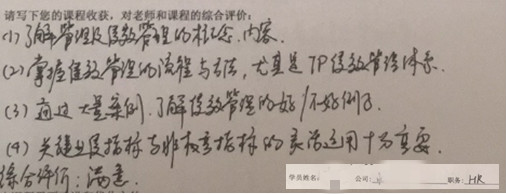 请写下您的课程收获，对老师和课程的综合评价：
(1)了解管理及绩效管理的概念、内容.
(2)掌握绩效管理的流程与方法，尤其是TP绩效管理体系.
(3)通过大量案例，了解绩效管理的好/不好例子.
(4)关键业绩指标与非权重指标的灵活运用十分重要.
综合评价：满意.
学员姓名： 公司： 职务：HR